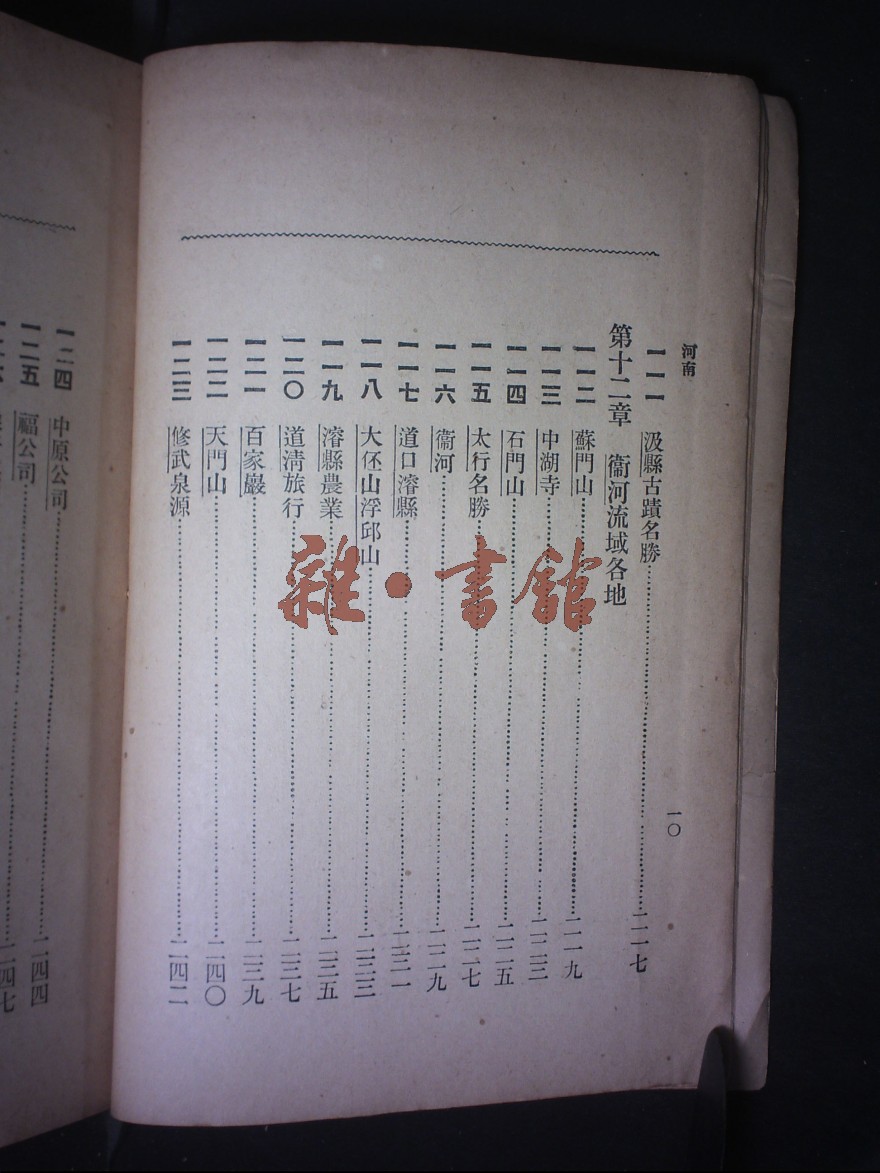 河南
一〇
一一一 汲縣古蹟名勝……二一七
第十二章 衞河流域各地
一一二 蘇門山……二一九
一一三 中湖寺……二二三
一一四 石門山……二二五
一一五 太行名勝……二二七
一一六 衞河……二二九
一一七 道口濬縣……二三一
一一八 大伾山浮邱山……二三三
一一九 濬縣農業……二三五
一二〇 道清旅行……二三七
一二一 百家巖……二三九
一二二 天門山……二四〇
一二三 修武泉源……二四二
一二四 中原公司……二四四
一二五 福公司……二四七
雜·書館